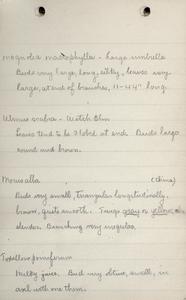 Magnolia macrophylla - Large umbrella
Buds very large, long, silky, leaves very
large, at end of branches, 11-44" long.
Ulmus scabra - Witch Elm
Leaves tend to be 3 lobed at end. Buds large
round and brown.
Morus alba (China)
Buds very small, triangular longitudinally,
brown, quite smooth. Twigs gray or yellow,
slender. Branching very irregular.
Toxylon pomiferum
Milky juice. Bud very obtuse, small, in
axil with one thorn.